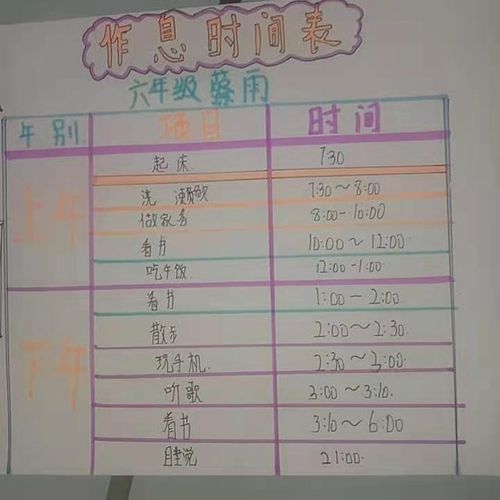 作息时间表
六年级 蔡雨
午别 项目 时间
上午
起床 7:30
洗漱 7:30~8:00
做家务 8:00-10:00
看书 10:00~12:00
吃午饭 12:00-1:00
下午
看书 1:00-2:00
散步 2:00~2:30
玩手机 2:30~3:00
听歌 3:00~3:10
看书 3:10~6:00
睡觉 21:00